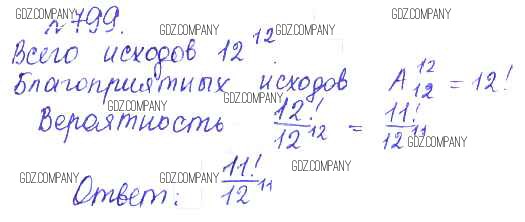 №799. GDZ.COMPANY GDZ.COMPANY GDZ.COMPANY
Всего исходов 12^12.
GDZ.COMPANY GDZ.COMPANY
Благоприятных исходов A_12^12 = 12!
GDZ.COMPANY GDZ.COMPANY
Вероятность 12!/12^12 = 11!/12^11
GDZ.COMPANY
GDZ.COMPANY GDZ.COMPANY
Ответ: 11!/12^11
GDZ.COMPANY